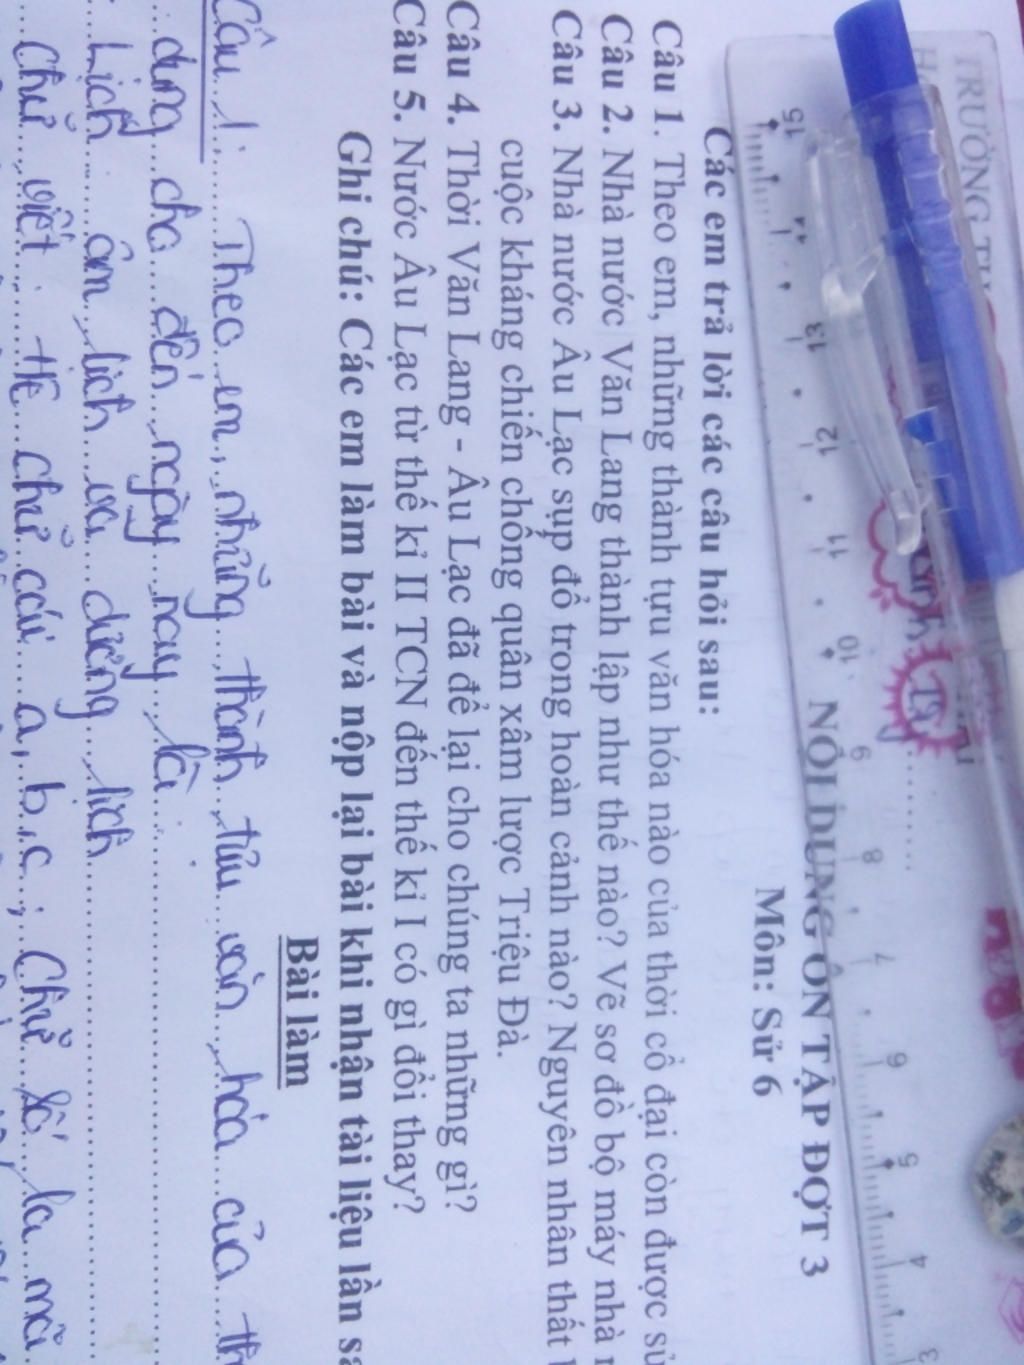 TRƯỜNG
NỘI DUNG ÔN TẬP ĐỢT 3
Môn: Sử 6
Các em trả lời các câu hỏi sau:
Câu 1. Theo em, những thành tựu văn hóa nào của thời cổ đại còn được sử
Câu 2. Nhà nước Văn Lang thành lập như thế nào? Vẽ sơ đồ bộ máy nhà
Câu 3. Nhà nước Âu Lạc sụp đổ trong hoàn cảnh nào? Nguyên nhân thất
cuộc kháng chiến chống quân xâm lược Triệu Đà.
Câu 4. Thời Văn Lang - Âu Lạc đã để lại cho chúng ta những gì?
Câu 5. Nước Âu Lạc từ thế kỉ II TCN đến thế kỉ I có gì đổi thay?
Ghi chú: Các em làm bài và nộp lại bài khi nhận tài liệu lần
Bài làm
Câu 1: Theo em, những thành tựu văn hóa của
dụng cho đến ngày nay là:
Lịch âm lịch và dương lịch
Chữ viết: chữ cái a, b, c; Chữ số la mã
15 13 12 11 10 9 8 7 6 5 4 3